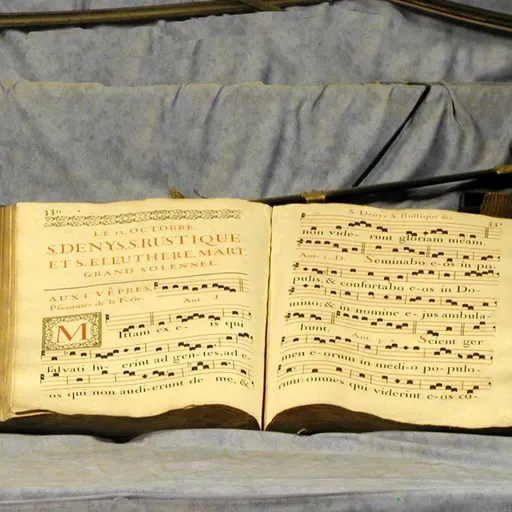 LE IX. OCTOBRE
S. DENYS, S. RUSTIQUE
ET S. ELEUTHERE, MART.
GRAND SOLENNEL.
AUX I. VÊPRES,
Pseaumes de la Férie.
Ant. J
MIttam ex e- is qui
salvati fu- erint ad gen-tes, ad e-
os qui non audi-erunt de me, &
S. Denys, S. Rustique &c.
non vide- runt gloriam meam.
Ant. 2. D. Seminabo e-os in po-
pulis, & confortabo e-os in Do-
mino; & in nomine e-jus ambula-
bunt. Scient ger-
men e-orum in medi-o po-pulo-
rum: omnes qui viderint e-os co-